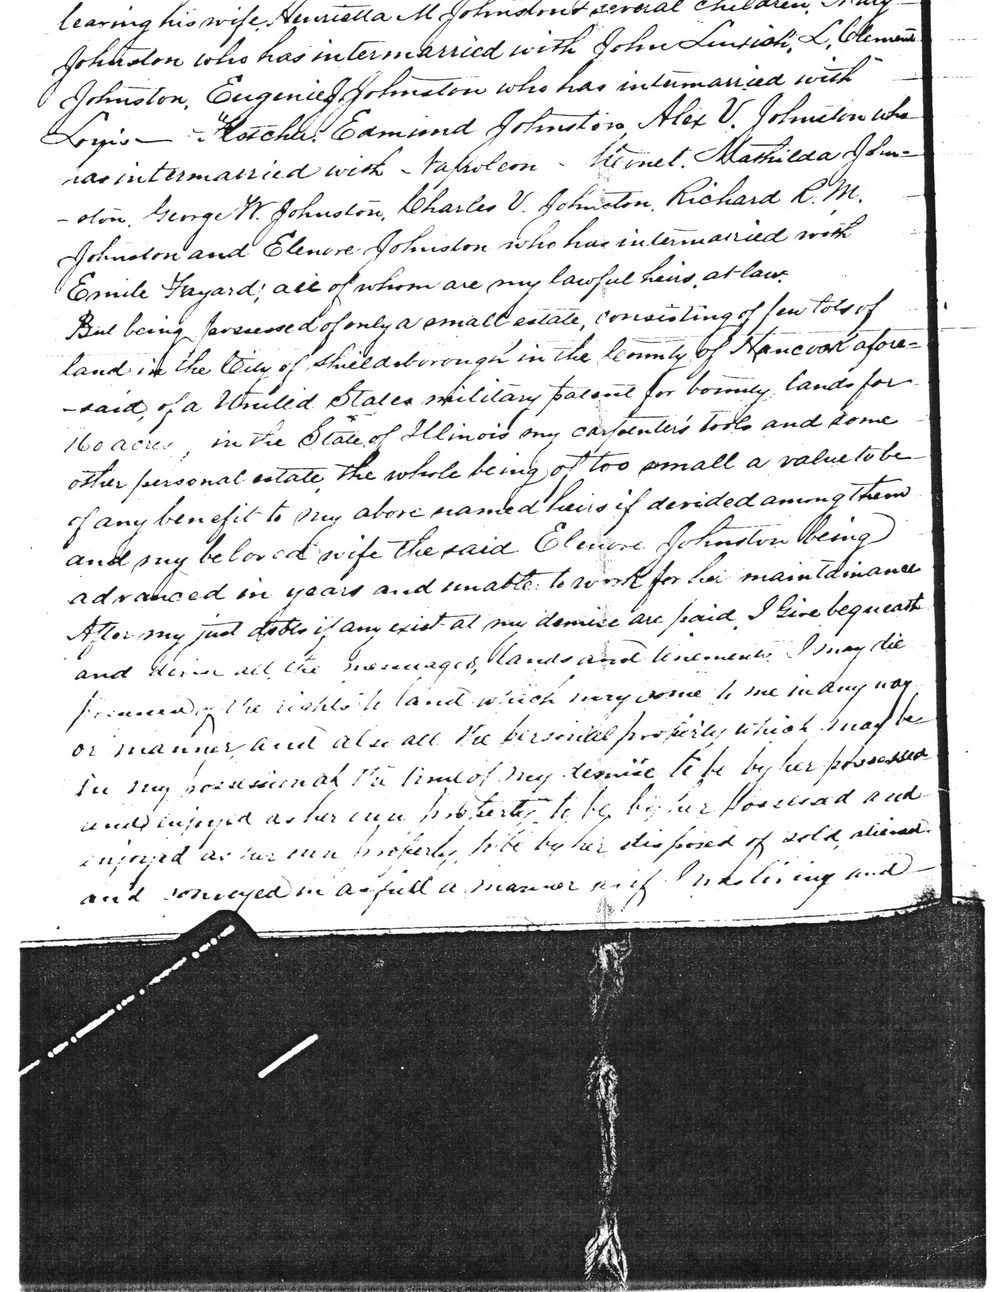 leaving his wife, Henrietta M Johnston & several children, Mary
Johnston who has intermarried with John L. Clement
Johnston, Eugenie Johnston who has intermarried with
Louis Edmund Johnston, Alex V. Johnston who
has intermarried with Napoleon Monet. Mathilda John-
-ston, George W. Johnston, Charles V. Johnston, Richard R. M.
Johnston and Elenore Johnston who has intermarried with
Emile Fayard; all of whom are my lawful heirs, at law.
But being possessed of only a small estate, consisting of few lots of
land in the City of Shieldsborough in the County of Hancock afore-
-said, of a United States military patent for bounty lands for
160 acres, in the State of Illinois my carpenter's tools and some
other personal estate, the whole being of too small a value to be
of any benefit to my above named heirs if devided among them
and my beloved wife the said Elenore Johnston being
advanced in years and unable to work for her maintainance
After my just debts if any exist at my demise are paid, I Give bequeath
and devise all the messuages, lands and tenements I may die
possessed of the rights to land which may come to me in any way
or manner, and also all the personal property which may be
in my possession at the time of my demise to be by her possessed
and enjoyed as her own property, to be by her possessed and
enjoyed as her own property, to be by her disposed of sold, aliened
and conveyed in as full a manner as if I was living and